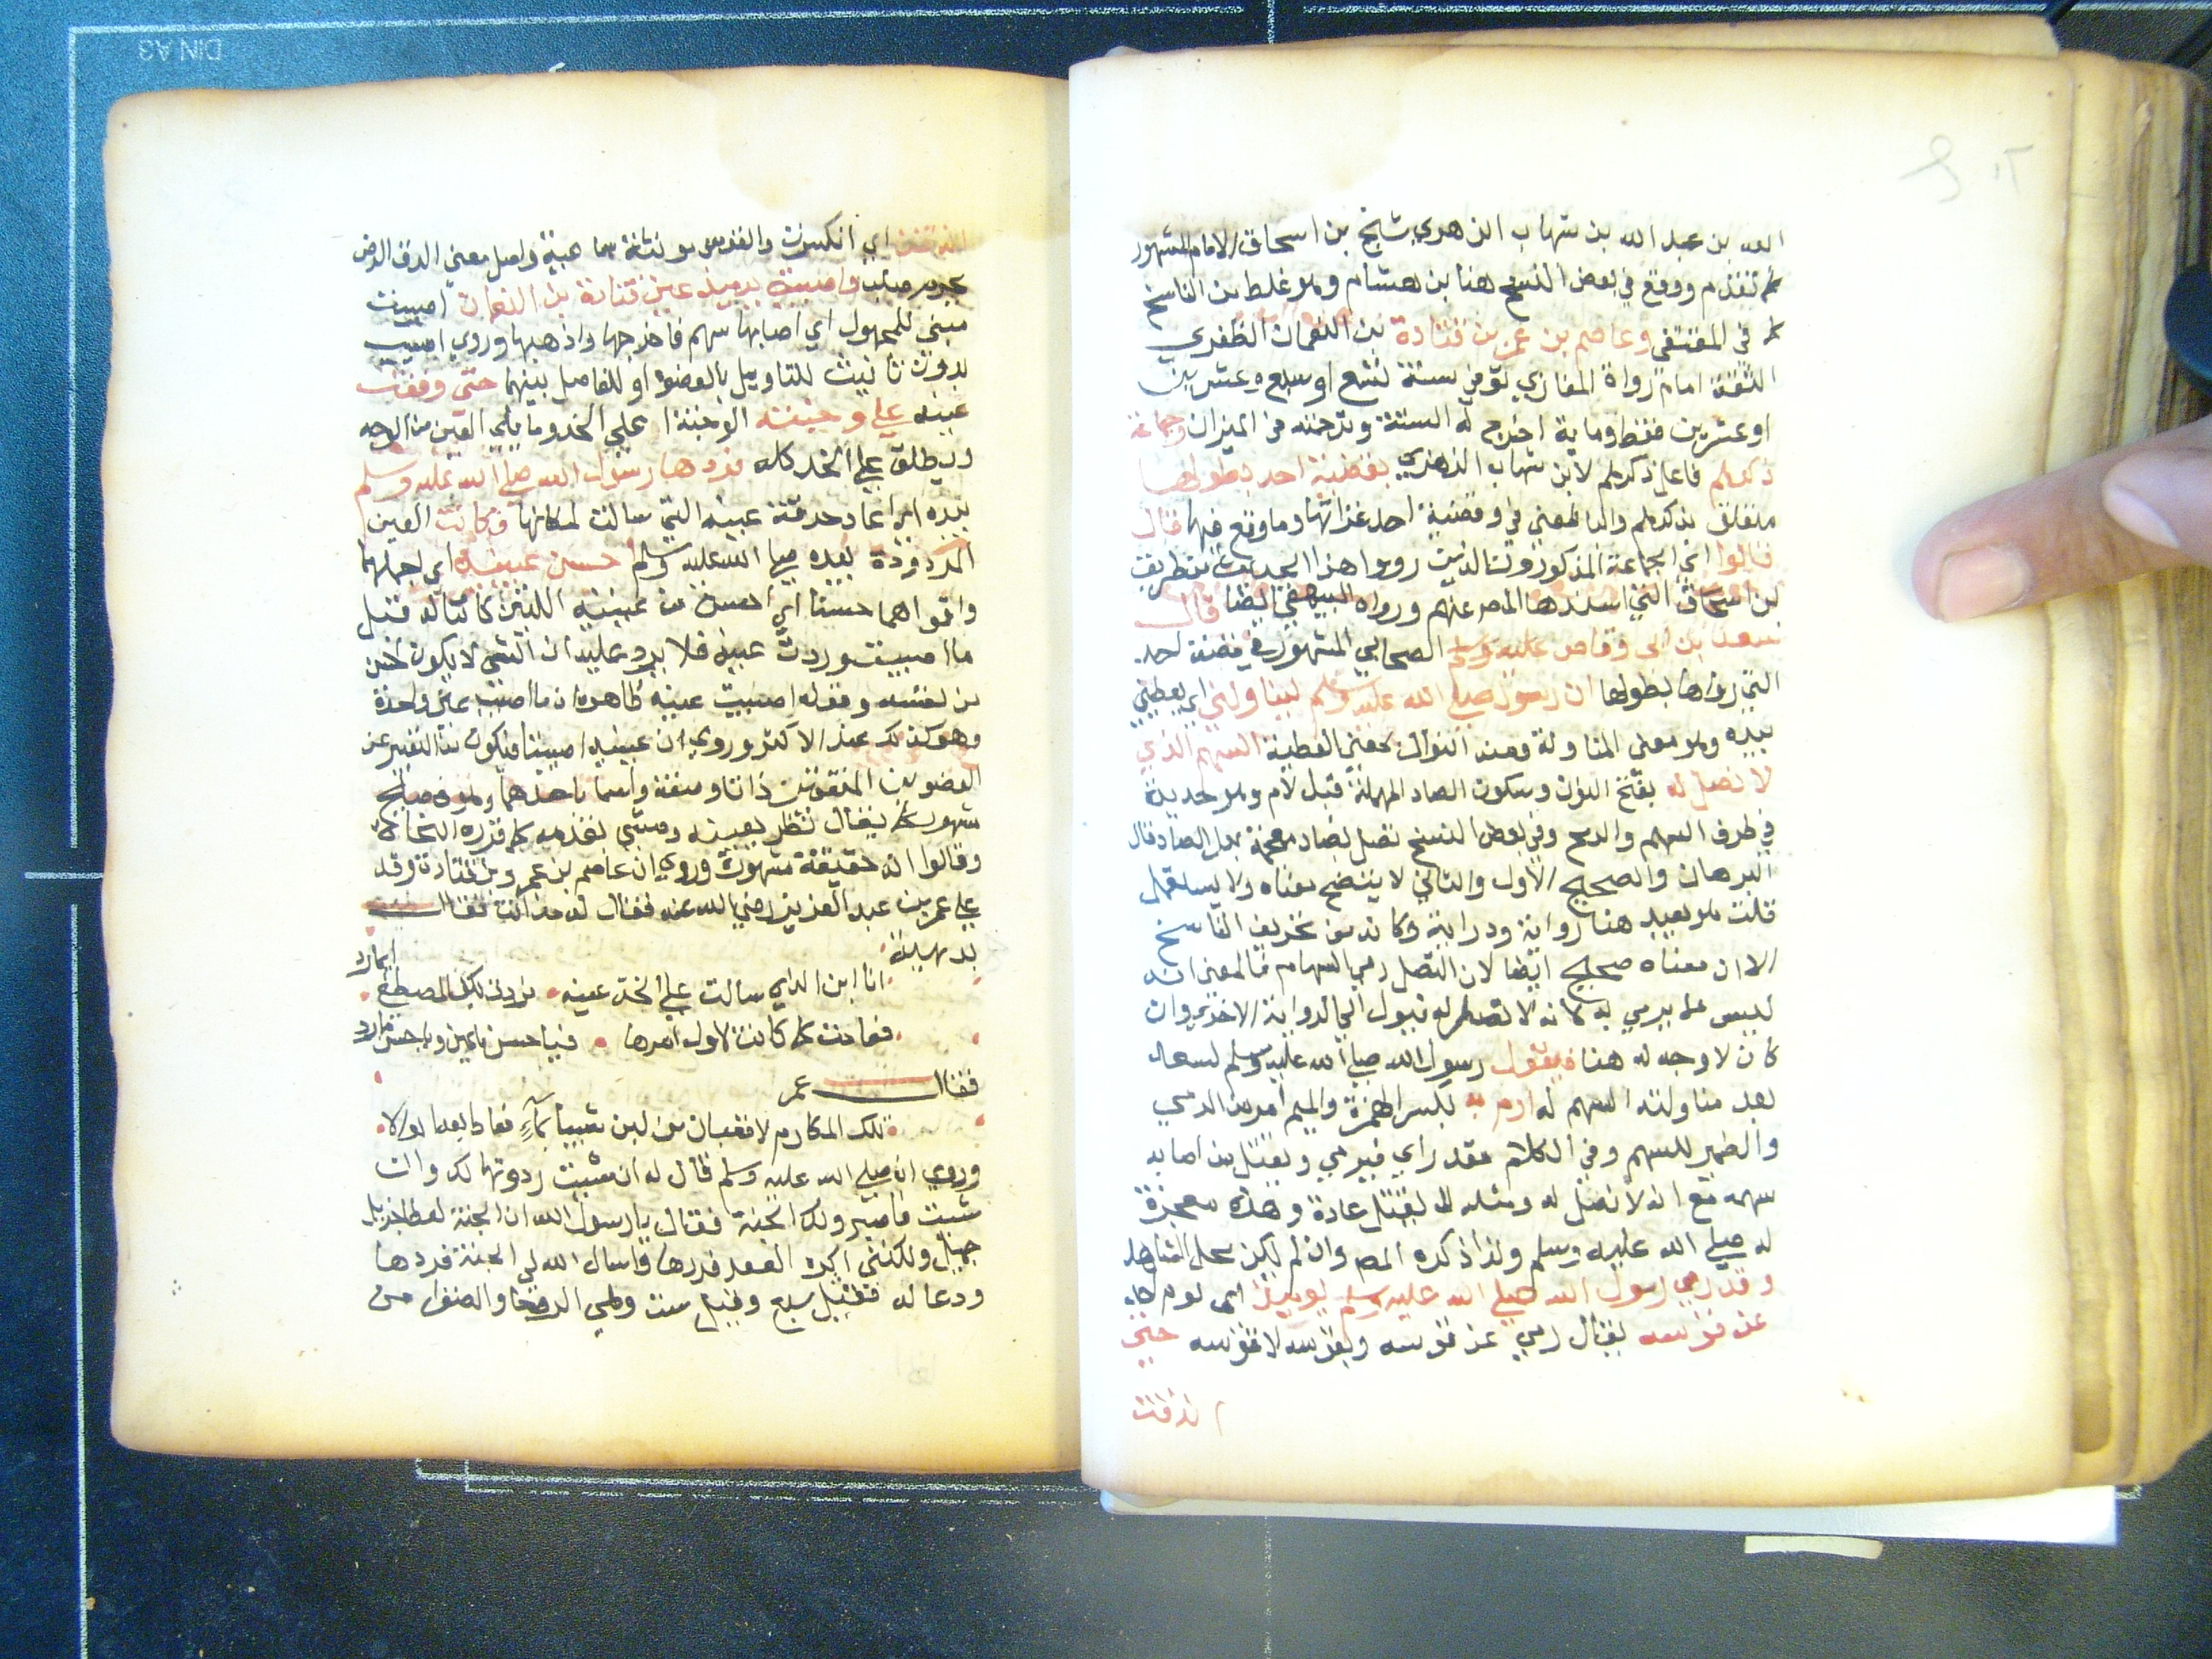 الله بن عبد الله بن شهاب الزهري شيخ بن اسحاق الامام المشهور
كما تقدم ووقع في بعض النسخ هنا بن هشام وهو غلط من الناسخ
كما في المقتفى وعاصم بن عمر بن قتادة بن النعمان الظفري
الثقة امام رواة المغازي توفي سنة تسع او سبع وعشرين
او عشرين فقط وماية اخرج له الستة وترجمته في الميزان وجماعة
ذكرهم فاعل ذكرهم لابن شهاب الزهري بقضية احد بطولها
متعلق بذكرهم والبا بمعنى في وقضية احد غزاتها وما وقع فيها قال
قالوا اي الجماعة المذكورون الذين رووا هذا الحديث من طريق
بن اسحاق التي اسندها المص عنهم ورواه البيهقي ايضا قال
سعد بن ابي وقاص الصحابي المشهور في قصة احد
التي رواها بطولها ان رسول صلى الله عليه وسلم ليناولني اي يعطيني
بيده وهو معنى المناولة ومنه النوال بمعنى العطية السهم الذي
لا نصل له بفتح النون وسكون الصاد المهملة قبل لام وهو حديدة
في طرف السهم والرمح وفي بعض النسخ نضل بضاد معجمة بدل الصاد قال
البرهان والصحيح الاول والثاني لا يتضح معناه ولا يستعمل
قلت هو بعيد هنا رواية ودراية وكانه من تحريف الناسخ
الا ان معناه صحيح ايضا لان النضل رمي السهام فالمعنى انه
ليس مما يرمي به لانه لا نصل له فيول الى الرواية الاخرى وان
كان لا وجه له هنا فيقول رسول الله صلى الله عليه وسلم لسعد
بعد مناولته السهم له ارم به بكسر الهمزة والميم امر من الرمي
والضمير للسهم وفي الكلام مقدر اي فيرمي ويقتل من اصابه
سهمه مع انه لا نصل له ومثله لا يقتل عادة وهذه معجزة
له صلى الله عليه وسلم ولذا ذكره المص وان لم يكن محل الشاهد
وقد رمى رسول الله صلى الله عليه وسلم يوميذ اي يوم احد
عن قوسه يقال رمى عن قوسه وبقوسه لا قوسه حتى
اندقت
اندقت اي انكسرت والقوس مونثة سماعية واصل معنى الدق الرض
بجرم صلب واصيبت يوميذ عين قتادة بن النعمان اصيبت
مبني للمجهول اي اصابها سهم فاخرجها واذهبها وروي اصيب
بدون تانيث للتاويل بالعضو او للفاصل بينهما حتى وقعت
عينه على وجنته الوجنة اعلى الخد وما يلي العين من الوجه
ويطلق على الخد كله فردها رسول الله صلى الله عليه وسلم
بيده اي اعاد حدقة عينه التي سالت لمكانها فكانت العين
المردودة بيده صلى الله عليه وسلم احسن عينيه اي اجملهما
واقواهما حسنا اي احسن من عينيه اللتين كانتا له قبل
ما اصيبت وردت عينه فلا يرد عليه ان الشي لا يكون احسن
من نفسه وقوله اصيبت عينه ظاهره ان ما اصيب عين واحدة
وهو كذلك عند الاكثر وروي ان عينيه اصيبتا فيكون من التعبير عن
العضوين المتفقين ذاتا وصفة واسما باحدهما وهو فصيح
مشهور كما يقال نظر بعينه ومشى بقدمه كما قرره النحاة
وقالوا انه حقيقة مشهورة وروي ان عاصم بن عمر وبن قتادة وفد
على عمر بن عبد العزيز رضي الله عنه فقال له من انت فقال
بديهة
انا ابن الذي سالت على الخد عينه • فردت بكف المصطفى ايما رد
فعادت كما كانت لاول امرها • فيا حسن ما عين ويا حسن ما رد
فقال عمر
تلك المكارم لا قعبان من لبن شيبا بماء فعادا بعد ابوالا
وروي انه صلى الله عليه وسلم قال له ان شيت رددتها لك وان
شيت فاصبر ولك الجنة فقال يا رسول الله ان الجنة لعطا جزيل
جميل ولكنني اكره العور فردها واسال الله لي الجنة فردها
ودعا له فقيل سبع وقيل ست وهي الروحا والصفرا من